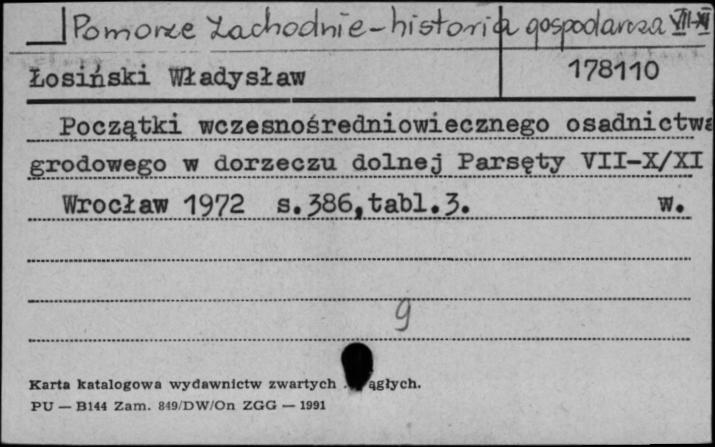 Pomorze Zachodnie - historia gospodarcza VII-XI
Łosiński Władysław
178110
Początki wczesnośredniowiecznego osadnictwa
grodowego w dorzeczu dolnej Parsęty VII-X/XI
Wrocław 1972 s.386,tabl.3. w.
9
Karta katalogowa wydawnictw zwartych . ągłych.
PU — B144 Zam. 849/DW/On ZGG — 1991